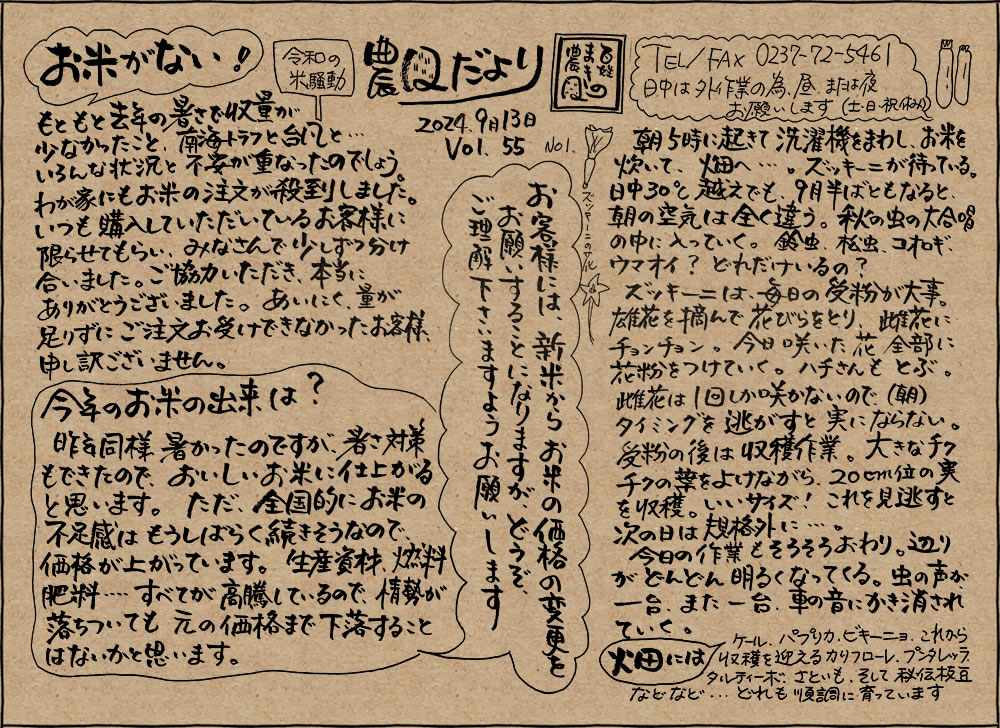 お米がない!
令和の
米騒動
農母だより
2024.9月13日
Vol. 55 No1.
百姓
まきの
農母
TEL/FAX 0237-72-5461
日中は外作業の為、昼、または夜
お願いします(土・日・祝休み)
もともと去年の暑さで収量が
少なかったこと、南海トラフと台風と…
いろんな状況と不安が重なったのでしょう。
わが家にもお米の注文が殺到しました。
いつも購入していただいているお客様に
限らせてもらい、みなさんで少しずつ分け
合いました。ご協力いただき、本当に
ありがとうございました。あいにく、量が
足りずにご注文お受けできなかったお客様、
申し訳ございません。
今年のお米の出来は?
昨年同様暑かったのですが、暑さ対策
もできたので、おいしいお米に仕上がる
と思います。ただ、全国的にお米の
不足感はもうしばらく続きそうなので、
価格が上がっています。生産資材、燃料
肥料…すべてが高騰しているので、情勢が
落ちついても元の価格まで下落すること
はないかと思います。
お客様には、新米からお米の価格の変更を
お願いすることになりますが、どうぞ、
ご理解下さいますようお願いします
ズッキーニの花
朝5時に起きて洗濯機をまわし、お米を
炊いて、畑へ…。ズッキーニが待っている。
日中30℃越えでも、9月半ばともなると、
朝の空気は全く違う。秋の虫の大合唱
の中に入っていく。鈴虫、松虫、コオロギ、
ウマオイ?どれだけいるの?
ズッキーニは、毎日の受粉が大事。
雄花を摘んで花びらをとり、雌花に
チョンチョン。今日咲いた花全部に
花粉をつけていく。ハチさんもとぶ。
雌花は1回しか咲かないので、(朝)
タイミングを逃がすと実にならない。
受粉の後は収穫作業。大きなチク
チクの葉をよけながら、20cm位の実
を収穫。いいサイズ!これを見逃すと
次の日は規格外に…。
今日の作業もそろそろおわり。辺り
がどんどん明るくなってくる。虫の声が
一台、また一台、車の音にかき消され
ていく。
畑には
ケール、パプリカ、ビキーニョ、これから
収穫を迎えるカリフローレ、プンタレッラ、
タルティーボ、さといも、そして秘伝枝豆
などなど…どれも順調に育っています